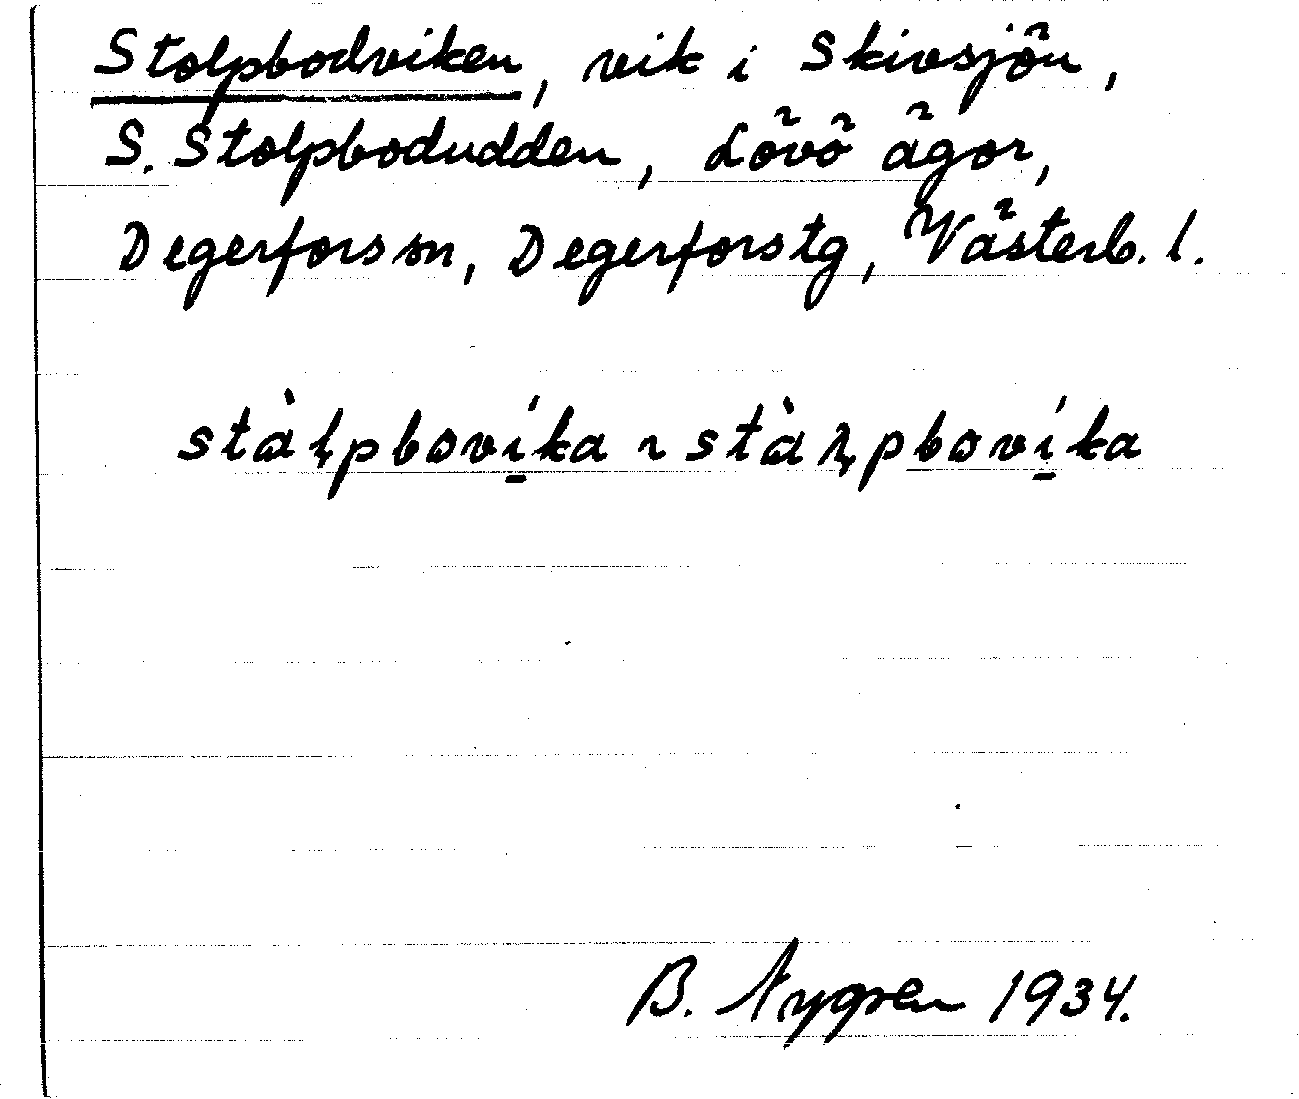 Stolpbodviken, vik i Skivsjön,
S. Stolpbodudden, Lövö ägor,
Degerfors sn, Degerfors tg, Västerb. l.
stàłpbovíka ~ stàɽpbovíka
B. Nygren 1934.